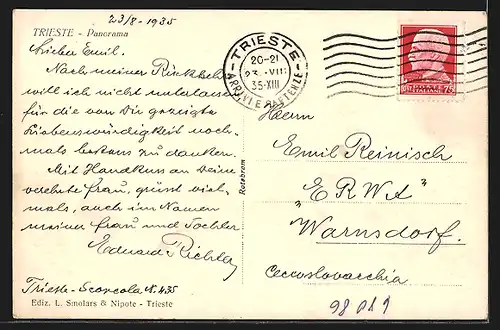 23/8 - 1935
TRIESTE - Panorama
Lieber Emil.
Nach meiner Rückkehr
will ich nicht unterlassen
für die von Dir gezeigte
Liebenswürdigkeit noch-
mals bestens zu danken.
Mit Handkuss an Deine
verehrte Frau, grüsst viel-
mals, auch im Namen
meiner Frau und Tochter
Eduard Richter
Trieste - Scorcola N. 435
Ediz. L. Smolars & Nipote - Trieste
Rotobrom
TRIESTE
20-21
23.VIII
35-XIII
ARRIVI E PARTENZE
75
Herrn
Emil Reinisch
"ERWA"
Warnsdorf.
Cecoslovacchia
98 019